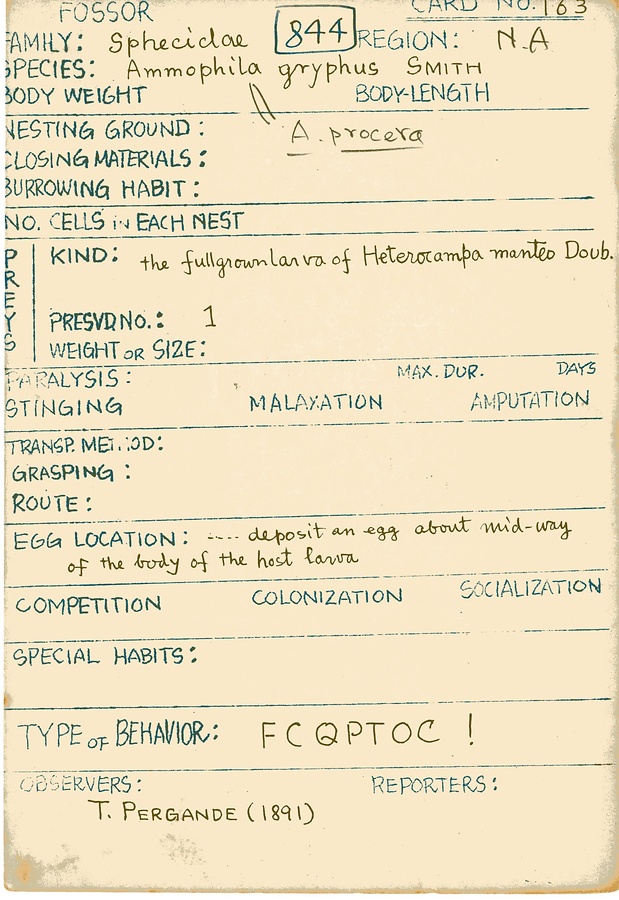 FOSSOR CARD NO. 163
FAMILY: Sphecidae 844 REGION: N.A
SPECIES: Ammophila gryphus SMITH
BODY WEIGHT BODY-LENGTH
NESTING GROUND: A. procera
CLOSING MATERIALS:
BURROWING HABIT:
NO. CELLS IN EACH NEST
PREYS
KIND: the fullgrown larva of Heterocampa manteo Doub.
PRESVD NO.: 1
WEIGHT OR SIZE:
PARALYSIS: MAX. DUR. DAYS
STINGING MALAXATION AMPUTATION
TRANSP. METHOD:
GRASPING:
ROUTE:
EGG LOCATION: ---- deposit an egg about mid-way
of the body of the host larva
COMPETITION COLONIZATION SOCIALIZATION
SPECIAL HABITS:
TYPE OF BEHAVIOR: FCQPTOC !
OBSERVERS: REPORTERS:
T. PERGANDE (1891)